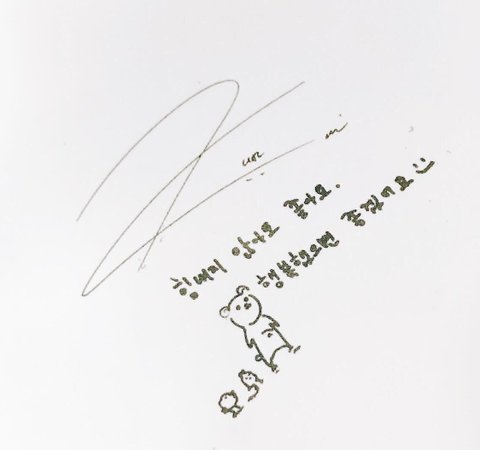 힘내지 않아도 좋아요.
행복했으면 좋겠어요 :)